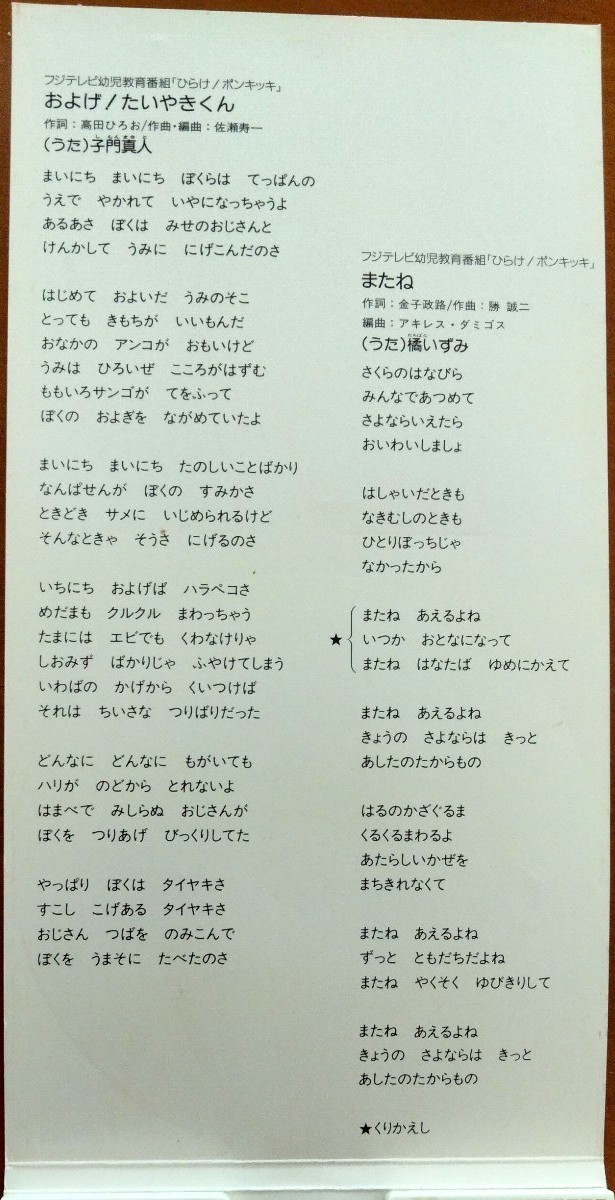 フジテレビ幼児教育番組「ひらけ!ポンキッキ」
およげ!たいやきくん
作詞:高田ひろお/作曲・編曲:佐瀬寿一
(うた)子門真人
まいにち まいにち ぼくらは てっぱんの
うえで やかれて いやになっちゃうよ
あるあさ ぼくは みせのおじさんと
けんかして うみに にげこんだのさ
はじめて およいだ うみのそこ
とっても きもちが いいもんだ
おなかの アンコが おもいけど
うみは ひろいぜ こころがはずむ
ももいろサンゴが てをふって
ぼくの およぎを ながめていたよ
まいにち まいにち たのしいことばかり
なんぱせんが ぼくの すみかさ
ときどき サメに いじめられるけど
そんなときゃ そうさ にげるのさ
いちにち およげば ハラペコさ
めだまも クルクル まわっちゃう
たまには エビでも くわなけりゃ
しおみず ばかりじゃ ふやけてしまう
いわばの かげから くいつけば
それは ちいさな つりばりだった
どんなに どんなに もがいても
ハリが のどから とれないよ
はまべで みしらぬ おじさんが
ぼくを つりあげ びっくりしてた
やっぱり ぼくは タイヤキさ
すこし こげある タイヤキさ
おじさん つばを のみこんで
ぼくを うまそに たべたのさ
フジテレビ幼児教育番組「ひらけ!ポンキッキ」
またね
作詞:金子政路/作曲:勝 誠二
編曲:アキレス・ダミゴス
(うた)橘いずみ
さくらのはなびら
みんなであつめて
さよならいえたら
おいわいしましょ
はしゃいだときも
なきむしのときも
ひとりぼっちじゃ
なかったから
またね あえるよね
★いつか おとなになって
またね はなたば ゆめにかえて
またね あえるよね
きょうの さよならは きっと
あしたのたからもの
はるのかざぐるま
くるくるまわるよ
あたらしいかぜを
まちきれなくて
またね あえるよね
ずっと ともだちだよね
またね やくそく ゆびきりして
またね あえるよね
きょうの さよならは きっと
あしたのたからもの
★くりかえし